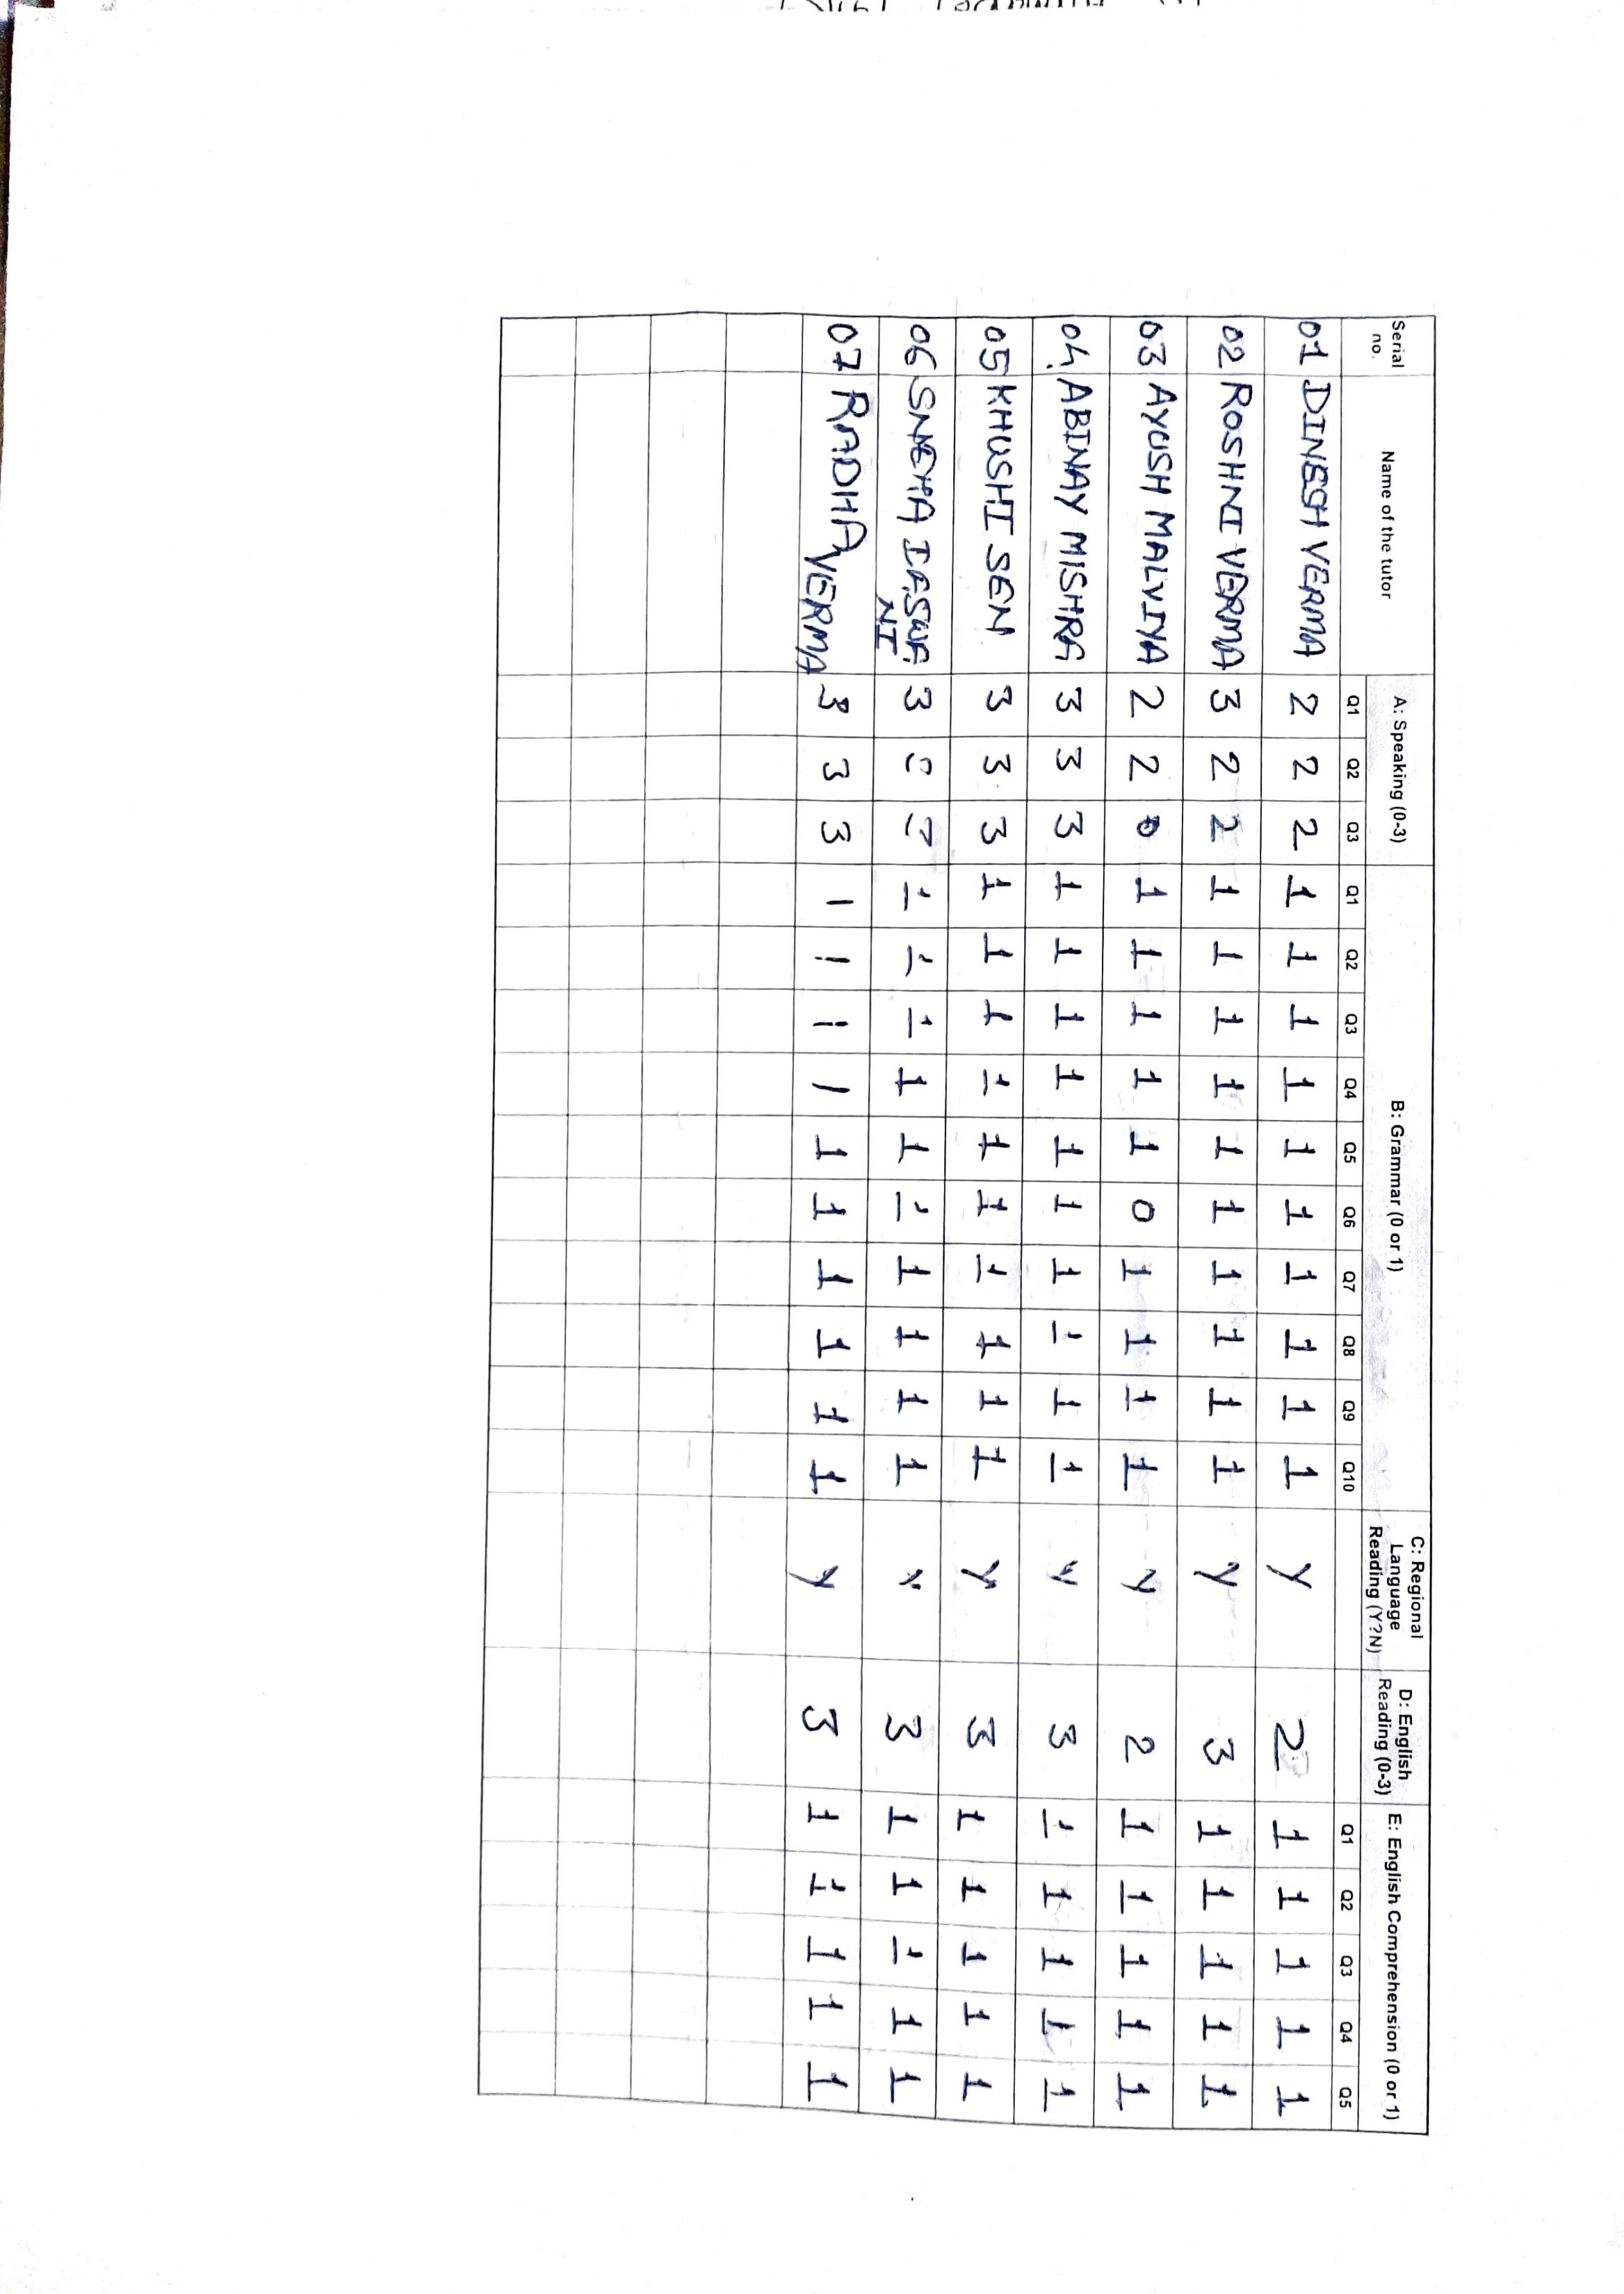 Serial no. Name of the tutor A: Speaking (0-3) B: Grammar (0 or 1) C: Regional Language Reading (Y?N) D: English Reading (0-3) E: English Comprehension (0 or 1)
Q1 Q2 Q3 Q1 Q2 Q3 Q4 Q5 Q6 Q7 Q8 Q9 Q10 Q1 Q2 Q3 Q4 Q5
01 DINESH VERMA 2 2 2 1 1 1 1 1 1 1 1 1 1 Y 2 1 1 1 1 1
02 ROSHNI VERMA 3 2 2 1 1 1 1 1 1 1 1 1 1 Y 3 1 1 1 1 1
03 AYUSH MALVIYA 2 2 0 1 1 1 1 1 0 1 1 1 1 Y 2 1 1 1 1 1
04. ABINAY MISHRA 3 3 3 1 1 1 1 1 1 1 1 1 1 Y 3 1 1 1 1 1
05 KHUSHI SEN 3 3 3 1 1 1 1 1 1 1 1 1 1 Y 3 1 1 1 1 1
06 SNEHA 3 1 1 1 1 1 1 1 1 1 1 Y 3 1 1 1 1 1
07 RADHA VERMA 3 3 3 1 1 1 1 1 1 1 1 1 1 Y 3 1 1 1 1 1